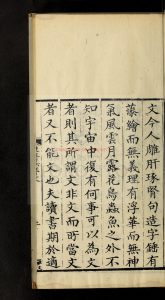 文今人雕肝琢腎句造字鍾有
藻繪而無義理有浮華而無神
氣風雲月露花鳥蟲魚之外不
知宇宙中復有何事可以為文
者則其所謂文非文而所當文
者又不能文也夫讀書期於適